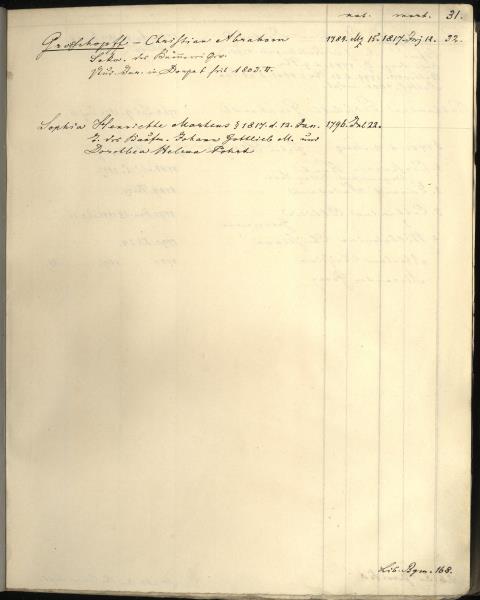 nat. mort. 31.
Groschopff – Christian Abraham 1784. Mz 15. 1817. Juj 12. 32.
Sekr. des Kämmerei Ger.
Stud. Jur. in Dorpat seit 1803. II.
Sophia Henriette Martens § 1817. d. 12. Jan. 1796. Jul 22.
T. des Kaufm. Johann Gottlieb M. und
Dorothea Helena Pohrt
Lib. Bgm. 168.